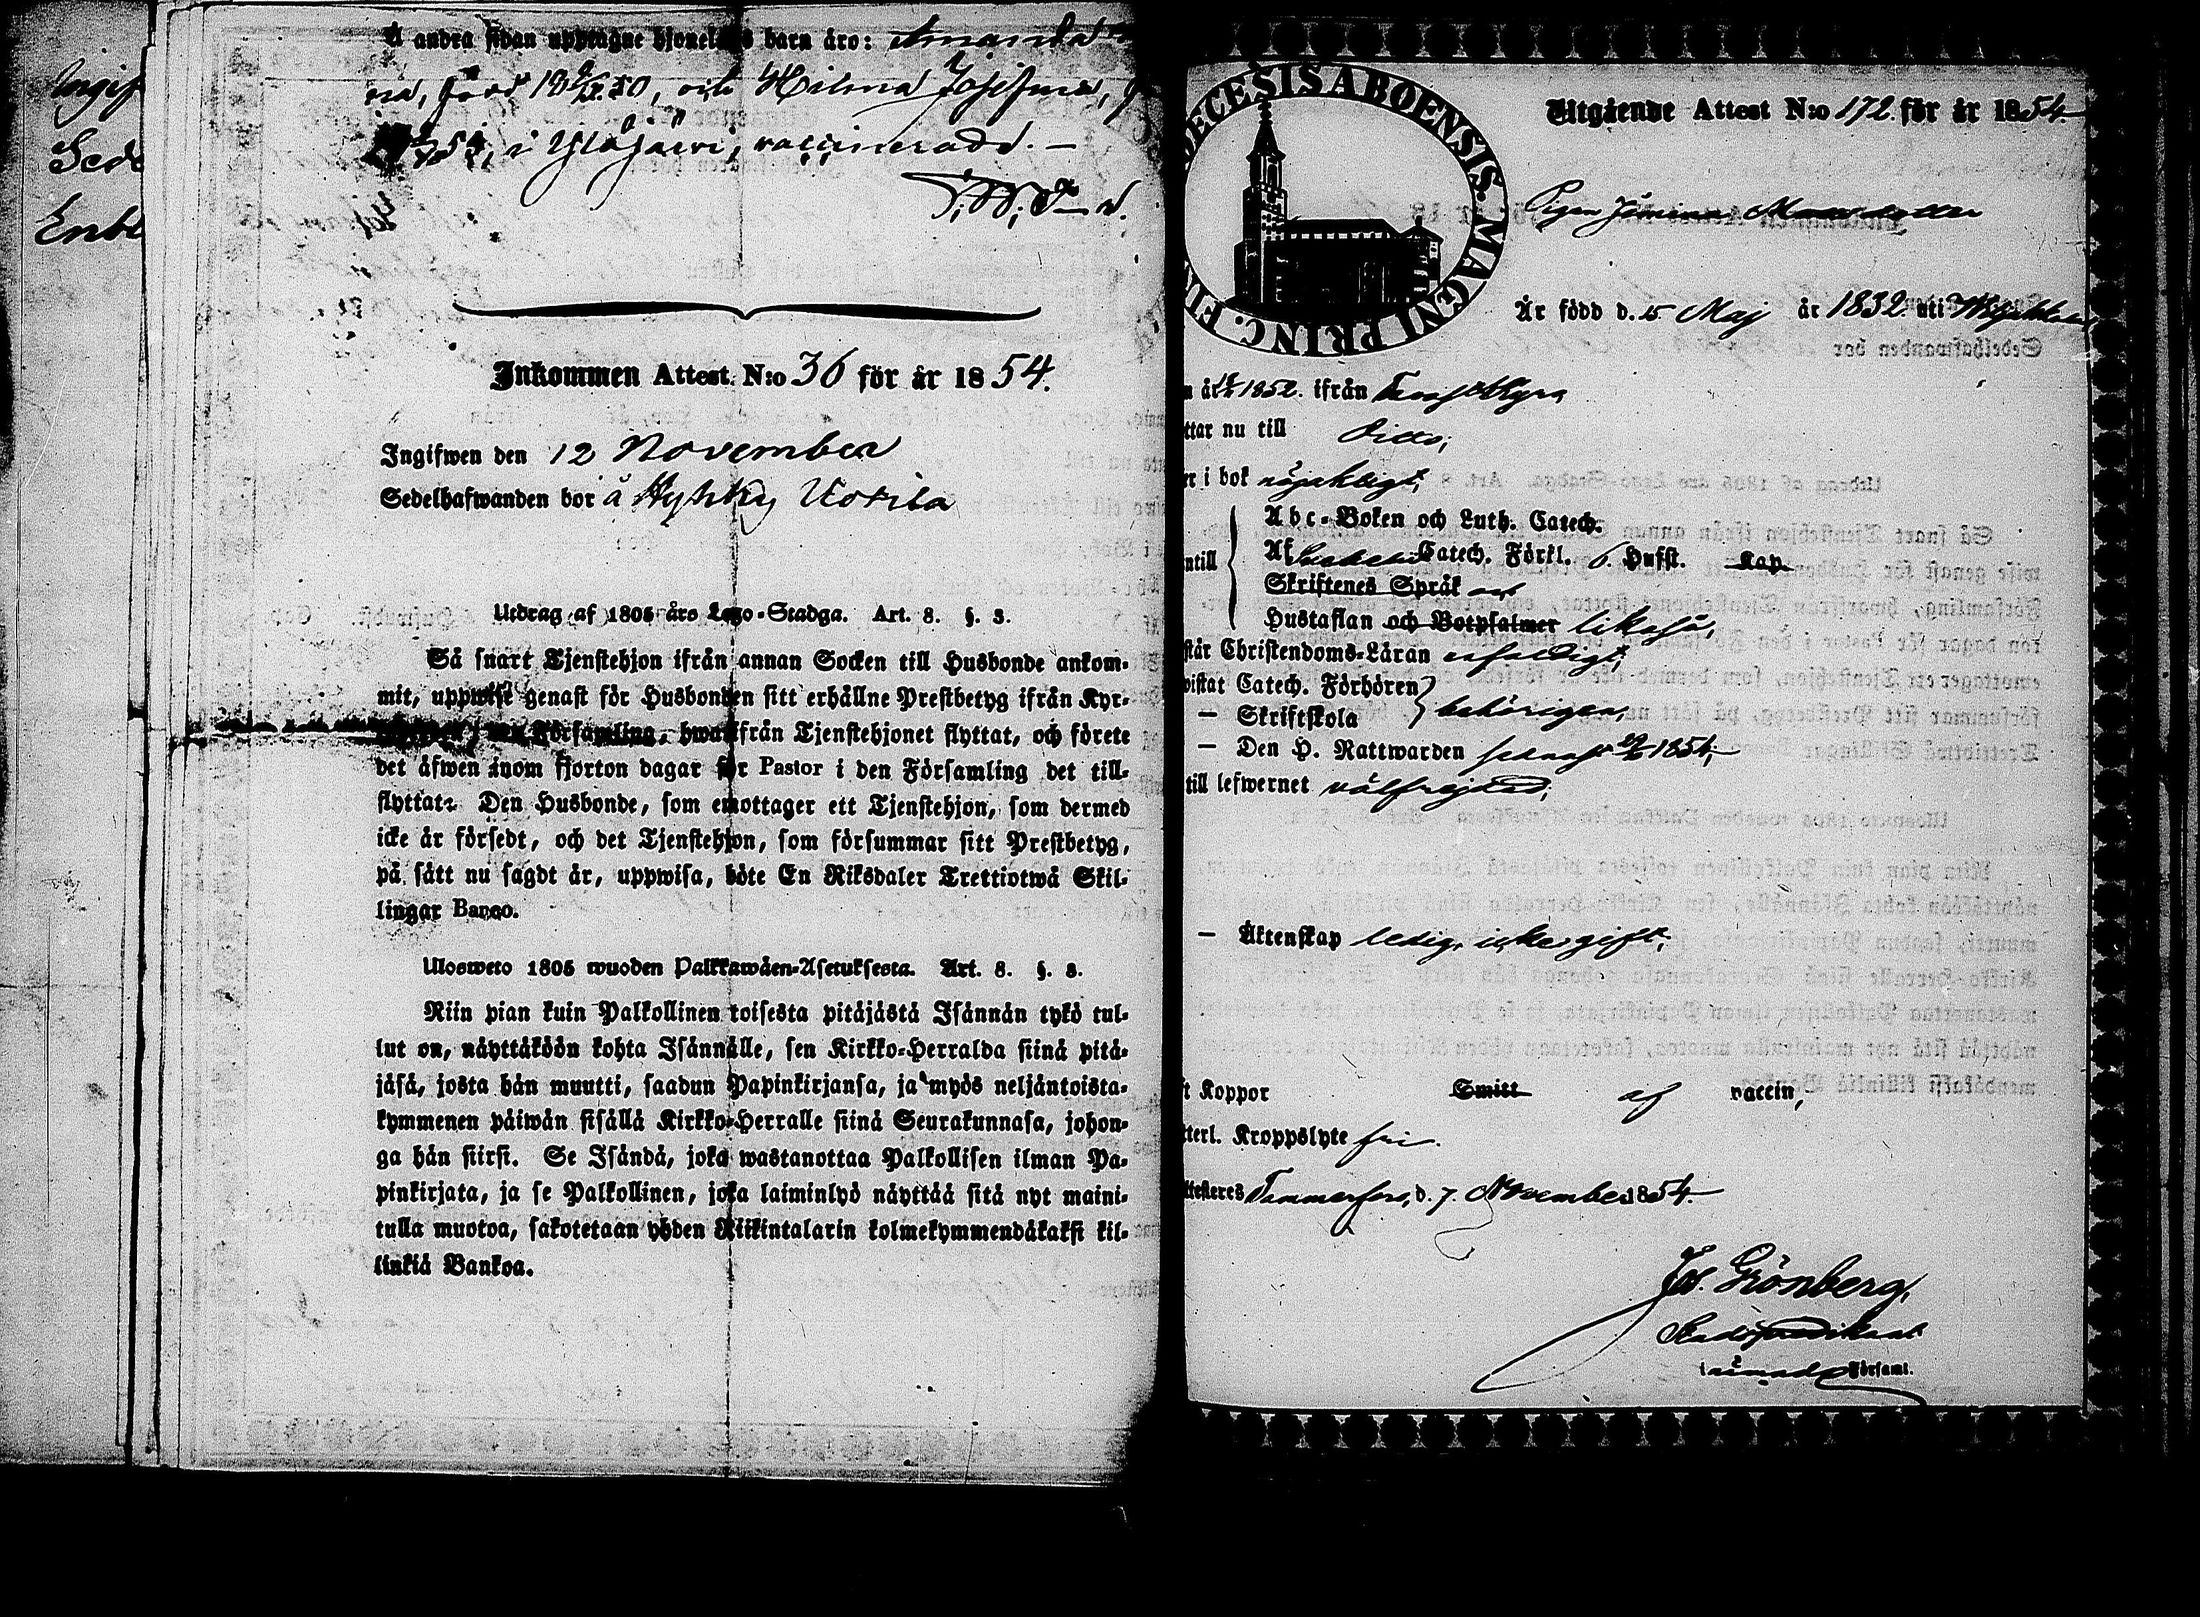 Ingif
Sede
Enbl
Å andra sidan upptagne hjonelags barn äro: Amanda
na, född 18 50, och Hilma Josefina,
i Ylöjärvi, vaccinerade. —
Inkommen Attest. N:o 36 för år 1854.
Ingifwen den 12 November
Sedelhafwanden bor å Hyhky Uotila
Utdrag af 1805 års Lego-Stadga. Art. 8. §. 3.
Så snart Tjenstehjon ifrån annan Socken till Husbonde ankom-
mit, uppwise genast för Husbonden sitt erhållne Prestbetyg ifrån Kyr-
Församling, hwarifrån Tjenstehjonet flyttat, och förete
det äfwen inom fjorton dagar för Pastor i den Församling det till-
flyttat. Den Husbonde, som emottager ett Tjenstehjon, som dermed
icke är försedt, och det Tjenstehjon, som försummar sitt Prestbetyg,
på sätt nu sagdt är, uppwisa, böte En Riksdaler Trettiotwå Skil-
lingar Banco.
Ulosweto 1805 wuoden Palkkawäen-Asetuksesta. Art. 8. §. 3.
Niin pian kuin Palkollinen toisesta pitäjästä Isännän tykö tul-
lut on, näyttäköön kohta Isännälle, sen Kirkko-Herralda siinä pitä-
jäsä, josta hän muutti, saadun Papinkirjansa, ja myös neljäntoista-
kymmenen päiwän sisällä Kirkko-Herralle siinä Seurakunnasa, johon-
ga hän siirsi. Se Isändä, joka wastanottaa Palkollisen ilman Pa-
pinkirjata, ja se Palkollinen, joka laiminlyö näyttää sitä nyt maini-
tulla muotoa, sakotetaan yhden Riikintalarin kolmekymmendäkaksi kil-
linkiä Bankoa.
DECESIS ABOENSIS. MAGNI PRINC. FIN
Utgående Attest N:o 172 för år 1854
Pigan
Är född d. 15 Maj år 1832 uti
n år 1852. ifrån
ttar nu till
er i bok nöjaktigt,
ntill
Abc-Boken och Luth. Catech.
Af Catech. Förkl. 6. Hufst. Kap.
Skriftenes Språk
Hustaflan och Botpsalmer likaså,
står Christendoms-Läran enfaldigt,
wistat Catech. Förhören
— Skriftskola behörigen,
— Den H. Nattwarden senast 1854,
till lefwernet välfrejdad,
— Äktenskap ledig, icke gift,
ft Koppor Smitt af vaccin,
tterl. Kroppslyte fri.
ttesteres Tammerfors, d. 7 November 1854.
Grönberg,
Stadspredikant
i nämnde Församl.